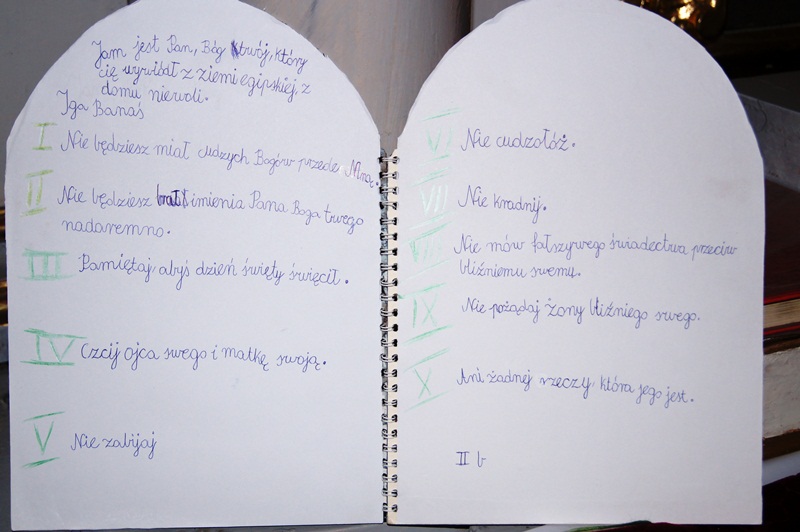 Jam jest Pan, Bóg twój, który
cię wywiódł z ziemi egipskiej, z
domu niewoli.
Iga Banaś
I Nie będziesz miał cudzych Bogów przede Mną.
II Nie będziesz brał imienia Pana Boga twego
nadaremno.
III Pamiętaj abyś dzień święty święcił.
IV Czcij ojca swego i matkę swoją.
V Nie zabijaj
VI Nie cudzołóż.
VII Nie kradnij.
VIII Nie mów fałszywego świadectwa przeciw
bliźniemu swemu.
IX Nie pożądaj żony bliźniego swego.
X Ani żadnej rzeczy, która jego jest.
II b